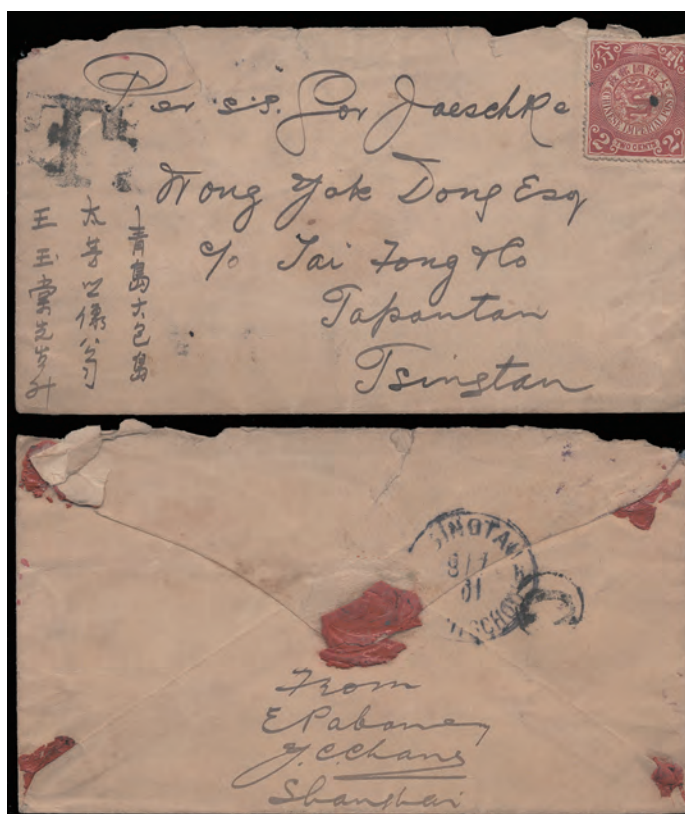 Per s.s. Gov Jaeschke
Wong Yok Dong Esq
c/o Tai Fong & Co
Tapautau
Tsingtau
青島大包島
王玉棠先生升
T.
CHINESE IMPERIAL POST
2 TWO CENTS 2
SINGTAU
01
C
From
E Pabaney
Y.C. Chang
Shanghai